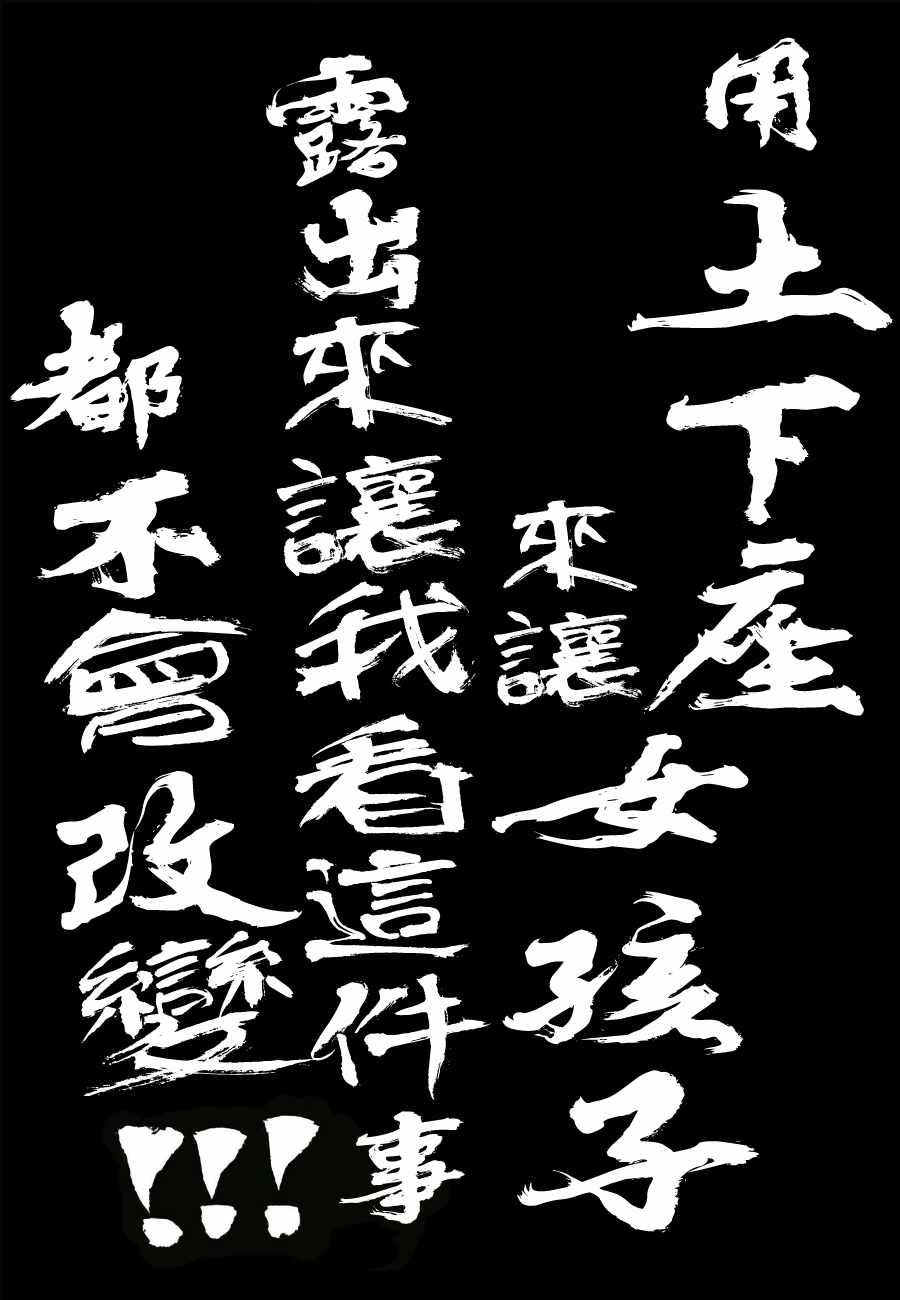 用土下座
來讓女孩子
露出來讓我看這件事
都不會改變!!!